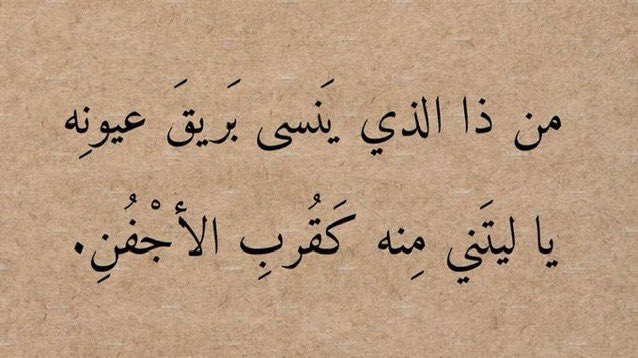 من ذا الذي يَنسى بَريقَ عيونِه
يا ليتَني مِنه كَقُربِ الأجْفُنِ.